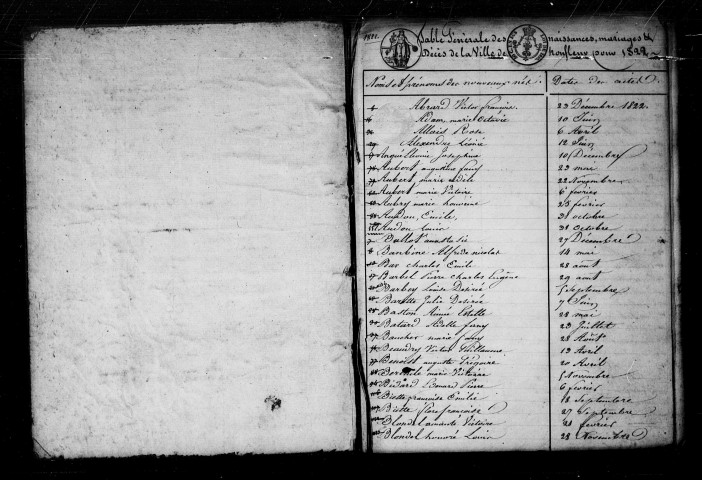 1822.
Table Générale des naissances, mariages &
Décès de la Ville de honfleur pour 1822.
Noms et prénoms des nouveaux nés. Date des actes.
Abrard Victor françois 23 Décembre 1822.
Adam marie Octavie 10 Juin
Allais Rose 6 Avril
Alexandre Léonie 12 Juin
Josephine 10 Décembre
Aubert augustine fany 23 mai
Aubert marie adèle 22 Novembre
Aubert marie Victoire 6 fevrier
Aubry marie 25 fevrier
Audou, Emile, 31 octobre
Audou 31 Octobre
Ballot 27 Décembre
Alfred nicolas 14 mai
Bar Charles Emile 28 aout
Barbel Pierre Charles Eugène 29 aout
Barbey Louise Desirée 5 Septembre
Barette Julie Desirée 7 Juin
Baston Aimée Estelle 28 mai
Batard Adelle fany 23 Juillet
Baucher marie fany 28 Aout
Beaudry Victor Guillaume 13 Avril
Benoist auguste Grégoire 20 Avril
marie Victoire 5 Novembre
Bidard Edouard Pierre 6 fevrier
Biette françoise Emilie 18 Septembre
Biette Flore françoise 27 Septembre
Blondel amante Victoire 21 fevrier
Blondel honoré Louis 23 Novembre